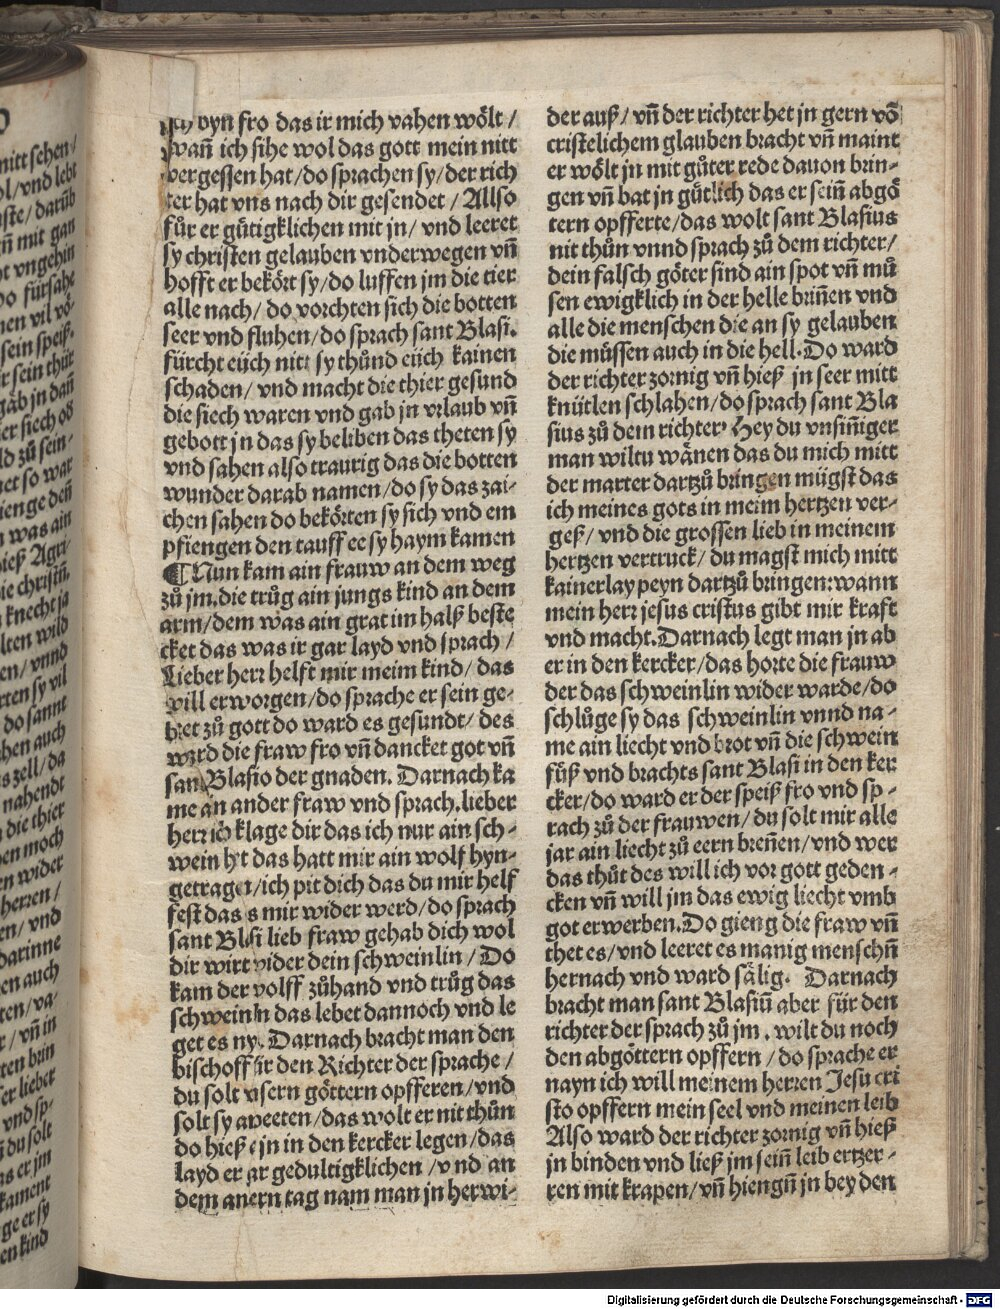 byn fro das ir mich vahen wölt /
wañ ich sihe wol das gott mein nitt
vergessen hat / do sprachen sy / der rich
ter hat vns nach dir gesendet / Allso
fůr er gütigklichen mit jn / vnd leeret
sy christen gelauben vnderwegen vñ
hofft er bekört sy / do luffen jm die tier
alle nach / do vorchten sich die botten
seer vnd fluhen / do sprach sant Blasi.
fürcht eüch nitt sy thůnd eüch kainen
schaden / vnd macht die thier gesund
die siech waren vnd gab jn vrlaub vñ
gebott jn das sy beliben das theten sy
vnd sahen also traurig das die botten
wunder darab namen / do sy das zai-
chen sahen do bekörten sy sich vnd em
pfiengen den tauff ee sy haym kamen
¶ Nun kam ain frauw an dem weg
zů jm. die trůg ain jungs kind an dem
arm / dem was ain grat im halß beste
cket das was ir gar layd vnd sprach /
Lieber herr helft mir meim kind / das
will erworgen / do sprache er sein ge-
bet zů gott do ward es gesundt / des
ward die fraw fro vñ dancket got vñ
sant Blasio der gnaden. Darnach ka
me an ander fraw vnd sprach. lieber
herr ich klage dir das ich nur ain sch-
wein het das hatt mir ain wolf hyn-
getragen / ich pit dich das du mir helf
fest das s mir wider werd / do sprach
sant Blasi lieb fraw gehab dich wol
dir wirt wider dein schweinlin / Do
kam der wolff zůhand vnd trůg das
schweinlin das lebet dannoch vnd le
get es ny. Darnach bracht man den
bischoff für den Richter der sprache /
du solt vnsern göttern opfferen / vnd
solt sy anbeeten / das wolt er nit thůn
do hieß e jn in den kercker legen / das
layd er gar gedultigklichen / vnd an
dem andern tag nam man jn herwi-
der auß / vñ der richter het jn gern võ
cristelichem glauben bracht vñ maint
er wölt jn mit gůter rede dauon brin-
gen vñ bat jn gütlich das er seiñ abgö
tern opfferte / das wolt sant Blasius
nit thůn vnnd sprach zů dem richter /
dein falsch göter sind ain spot vñ mů
sen ewigklich in der helle briñen vnd
alle die menschen die an sy gelauben
die müssen auch in die hell. Do ward
der richter zornig vñ hieß jn seer mitt
knütlen schlahen / do sprach sant Bla
sius zů dem richter. Hey du vnsiñiger
man wiltu wänen das du mich mitt
der marter dartzů bringen mügst das
ich meines gots in meim hertzen ver-
geß / vnd die grossen lieb in meinem
hertzen vertruck / du magst mich mitt
kainerlay peyn dartzů bringen: wann
mein herr jesus cristus gibt mir kraft
vnd macht. Darnach legt man jn ab
er in den kercker / das horte die frauw
der das schweinlin wider warde / do
schlůge sy das schweinlin vnnd na-
me ain liecht vnd brot vñ die schwein
füß vnd brachts sant Blasi in den ker
cker / do ward er der speiß fro vnd sp-
rach zů der frauwen / du solt mir alle
jar ain liecht zů eern breñen / vnd wer
das thůt des will ich vor gott geden-
cken vñ will jm das ewig liecht vmb
got erwerben. Do gieng die fraw vñ
thet es / vnd leeret es manig menschñ
hernach vnd ward sälig. Darnach
bracht man sant Blasiũ aber für den
richter der sprach zů jm. wilt du noch
den abgöttern opffern / do sprache er
nayn ich will meinem herren Jesu cri
sto opffern mein seel vnd meinen leib
Also ward der richter zornig vñ hieß
jn binden vnd ließ jm seiñ leib ertzer-
ren mit krapen / vñ hiengñ jn bey den
Digitalisierung gefördert durch die Deutsche Forschungsgemeinschaft - DFG